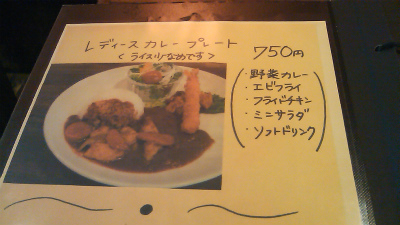 レディースカレープレート
<ライス少なめです>
750円
・野菜カレー
・エビフライ
・フライドチキン
・ミニサラダ
・ソフトドリンク